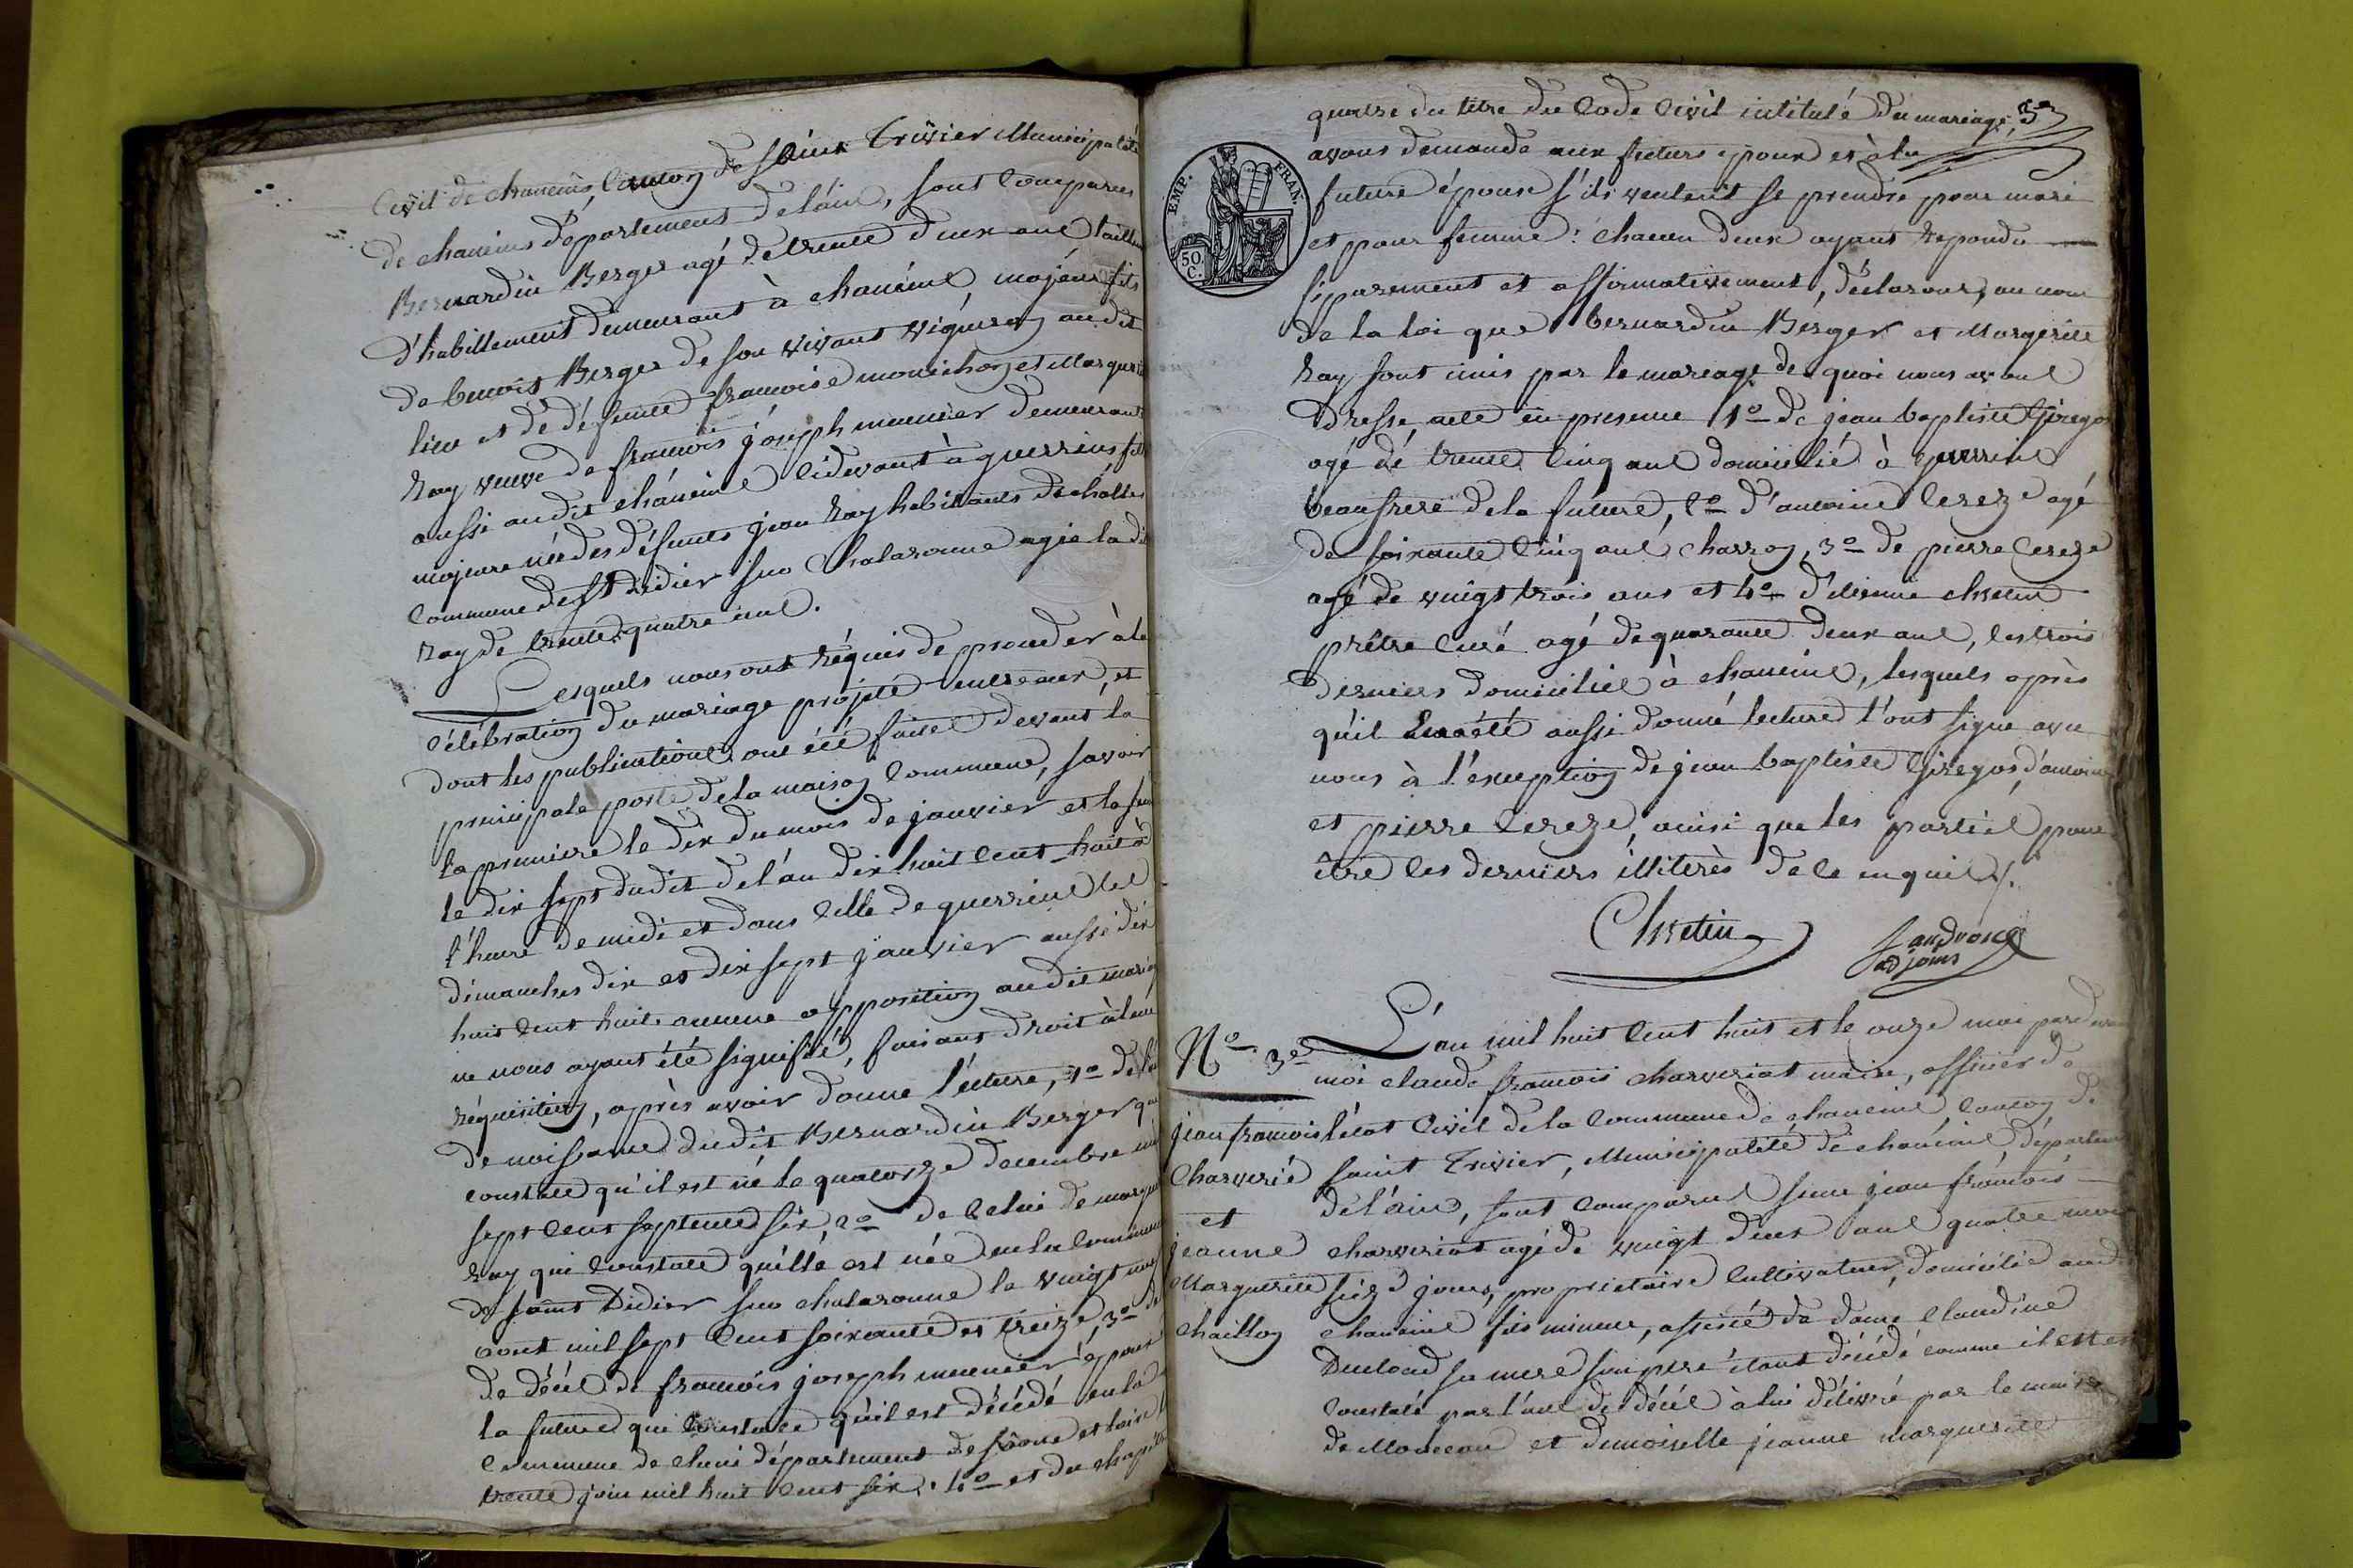 Civil de chaneins, Canton de Saint Trivier Municipalité
de chaneins département de l'ain, sont Comparus
Bernardin Berger agé de trente deux ans tailleur
d'habillement demeurant à chaneins, majeur fils
de benoit Berger de son vivant vigneron au dit
lieu et de défunte francoise monichon et Marguerite
Ray veuve de francois joseph meunier demeurant
aussi au dit chaneins Cidevant à guerrins fille
majeure née des défunts jean Ray habitants de
Commune de St Didier sur Chalaronne agée la dite
Ray de trente quatre ans.
Lesquels nous ont réquis de proceder à la
Célébration du mariage projeté entre eux, et
dont les publications ont été faites devant la
principale porte de la maison Commune, savoir
la premiere le dix du mois de janvier et la
le dix sept dudit de l'an dix huit Cent huit à
l'heure de midi et dans Celle de guerrins les
dimanches dix et dix sept janvier aussi dix
huit Cent huit. aucune opposition au dit mariage
ne nous ayant été signifié, faisant droit à leur
réquisition, après avoir donné lecture, 1o de
de naissance dudit Bernardin Berger qui
constate qu'il est né le quatorze decembre mil
sept Cent septente six, 2o de Celui de marguerite
Ray qui Constate qu'elle est née en la Commune
de Saint Didier sur chalaronne le vingt
aout mil sept Cent soixante et treize, 3o de
de décès de francois joseph meunier époux
la future qui Constate qu'il est décédé en la
Commune de département de Sâone et Loire le
trente juin mil huit Cent six. 4o et du chapitre
quatre du titre du Code Civil intitulé du mariage,
avons demandé aux futurs époux et à la
future épouse s'ils veulent se prendre pour mari
et pour femme: chacun d'eux ayant répondu
séparement et affirmativement, déclarons, au nom
de la loi que Bernardin Berger et Margerite
Ray sont unis par le mariage de quoi nous avons
dressé acte en presence 1o de jean baptiste
agé de trente Cinq ans domicilié à guerrins
beaufrere de la future, 2o d'antoine Cereze agé
de soixante Cinq ans, charron, 3o de pierre Cereze
agé de vingt trois ans et 4o d'etienne chretin
prêtre Curé agé de quarante deux ans, les trois
derniers domiciliés à chaneins, lesquels après
qu'il été aussi donné lecture l'ont signé avec
nous à l'exception de jean baptiste d'antoine
et pierre Cereze, ainsi que les parties pour
être les derniers illiterès de Ce enquis.
Chretin
adjoint
L'an mil huit Cent huit et le onze mai pardevant
No 3e
moi claude francois charveriat maire, officier de
l'état Civil de la Commune de chaneins Canton de
Saint Trivier, Municipalité de chaneins, département
de l'ain, sont Comparus sieur jean francois
charveriat agé de vingt deux ans quatre mois
seize jours, proprietaire Cultivateur, domicilié audit
chaneins fils mineur, assisté de dame Claudine
Ducloud sa mere son pere étant décédé comme il est
Constaté par l'acte de décès à lui délivré par le maire
de Monceau et demoiselle jeanne marguerite
jean francois
Charverié
et
jeanne
Marguerite
chaillon
EMP. FRAN.
50 C.